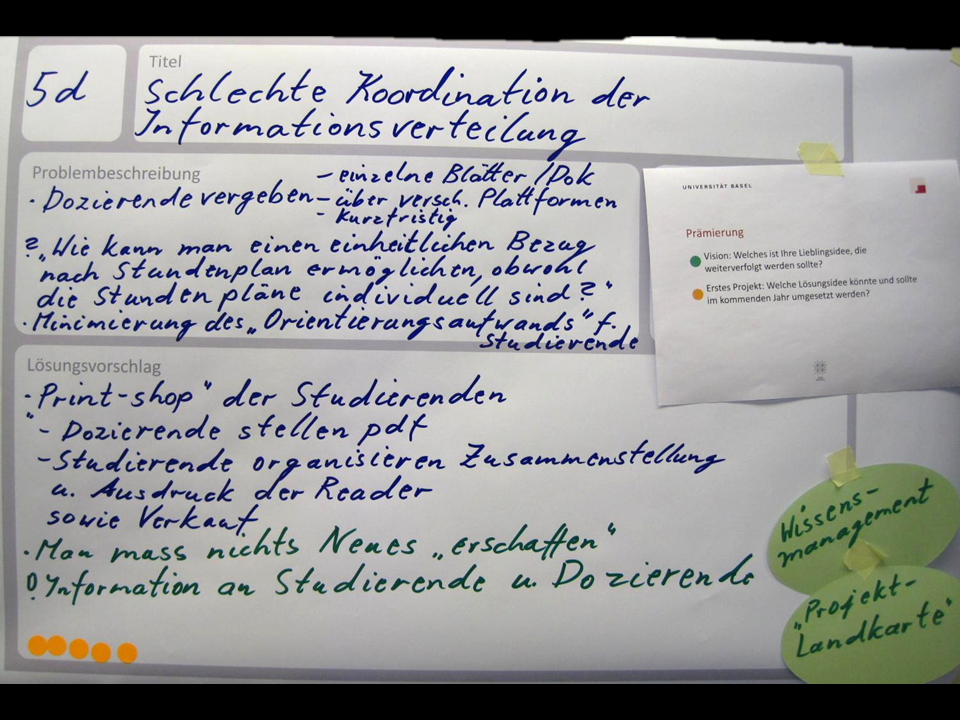 5d
Titel
Schlechte Koordination der
Informationsverteilung
Problembeschreibung
- einzelne Blätter / Dok
· Dozierende vergeben - über versch. Plattformen
- kurzfristig
? „Wie kann man einen einheitlichen Bezug
nach Stundenplan ermöglichen, obwohl
die Stundenpläne individuell sind?"
· Minimierung des „Orientierungsaufwands" f.
Studierende
Lösungsvorschlag
· „Print-shop" der Studierenden
- Dozierende stellen pdf
- Studierende organisieren Zusammenstellung
u. Ausdruck der Reader
sowie Verkauf
· Man mass nichts Neues „erschaffen"
! Information an Studierende u. Dozierende
UNIVERSITÄT BASEL
Prämierung
Vision: Welches ist Ihre Lieblingsidee, die
weiterverfolgt werden sollte?
Erstes Projekt: Welche Lösungsidee könnte und sollte
im kommenden Jahr umgesetzt werden?
Wissens-
management
„Projekt-
Landkarte"